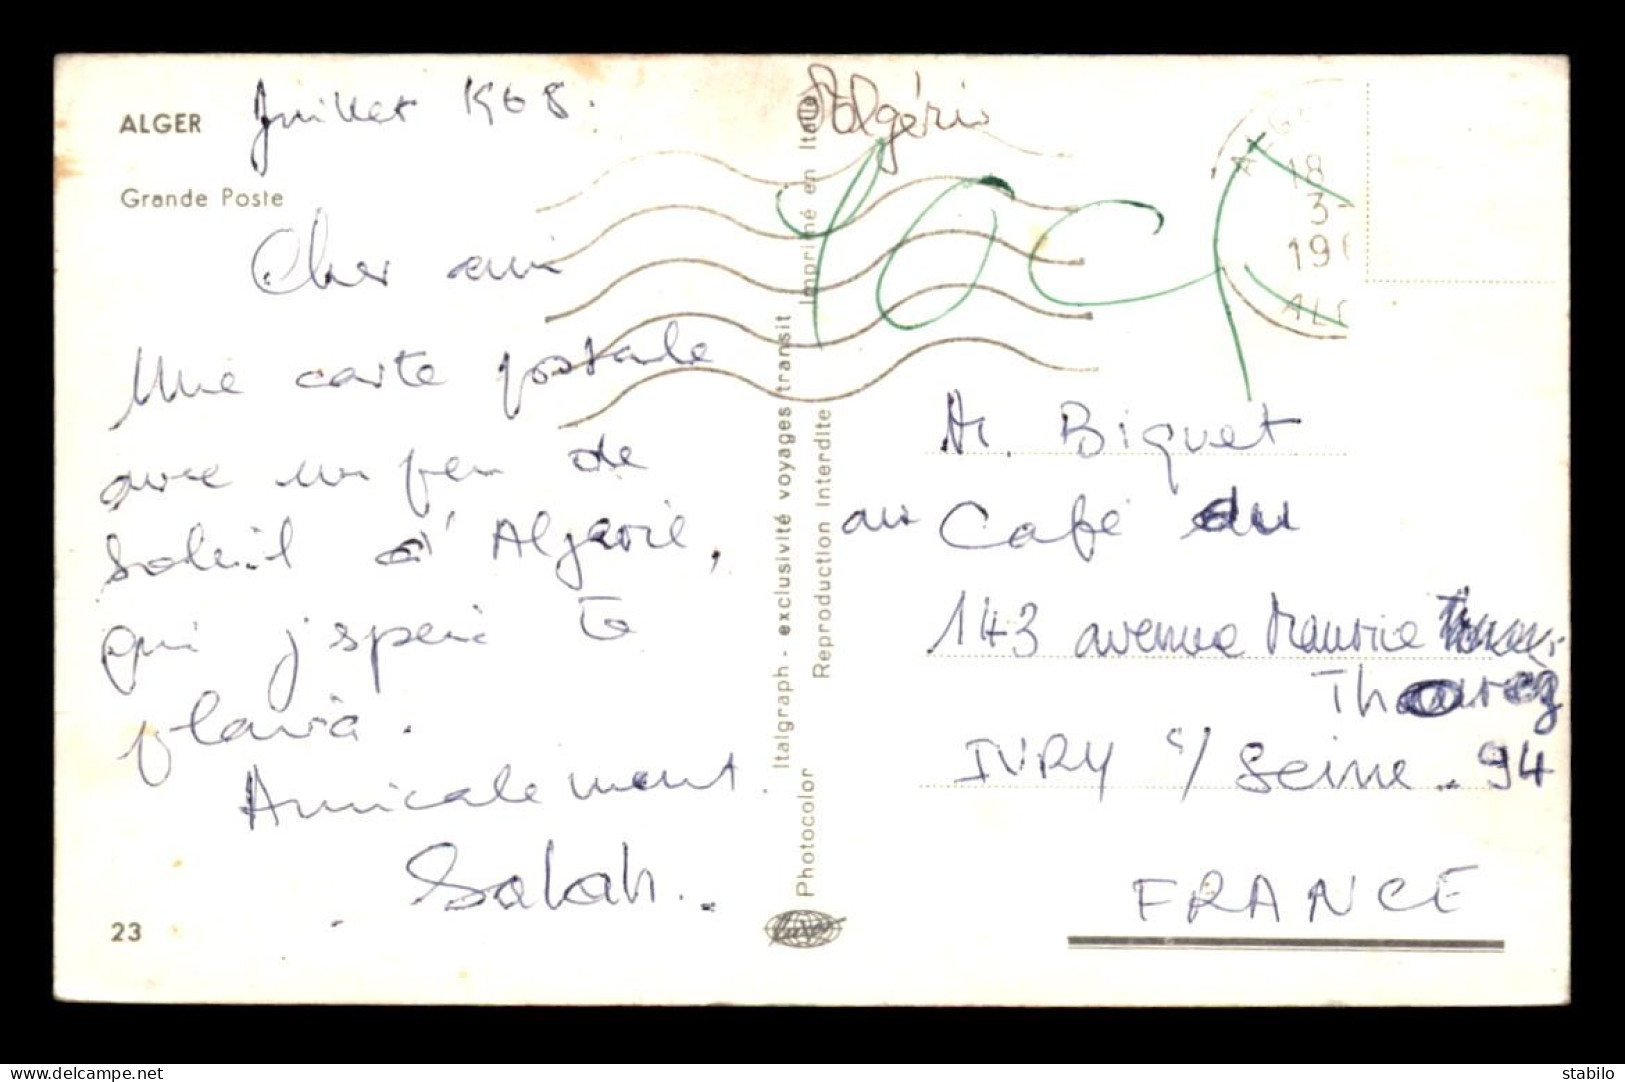 ALGER
Juillet 1968.
Grande Poste
Cher ami
Une carte postale
avec un peu de
soleil d'Algerie,
qui j'sperè te
plaira.
Amicalement.
Salah.
23
Italgraph - exclusivité voyages transit
Photocolor Reproduction Interdite Imprimé en Italie
Algérie
18
3-
196
M. Biquet
au Café du
143 avenue Maurice
Thorez
IVRY s/ Seine. 94
FRANCE
delcampe.net
stabilo